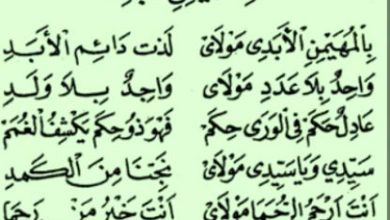 بِالْمُهَيْمِنِ الْأَبَدِى مَوْلَاىَ لُذْتُ دَائِمِ الْأَبَدِ
وَاحِدٌ بِلَا عَدَدِ مَوْلَاىَ وَاجِدٌ بِلَا وَلَدِ
عَادِلٌ حَكَمْ فِى الْوَرَى حِكَمْ فَهُوَ ذُو حِكَمْ يَكْشِفُ الْغُمَمْ
سَيِّدِي وَيَاسَيِّدِى مَوْلَاىَ نَجِّنَا مِنَ الْكَمَدِ
أَنْتَ أَرْحَمُ الرُّحَمَا مَوْلَاىَ أَنْتَ خَيْرُ مَنْ رَحِمَا